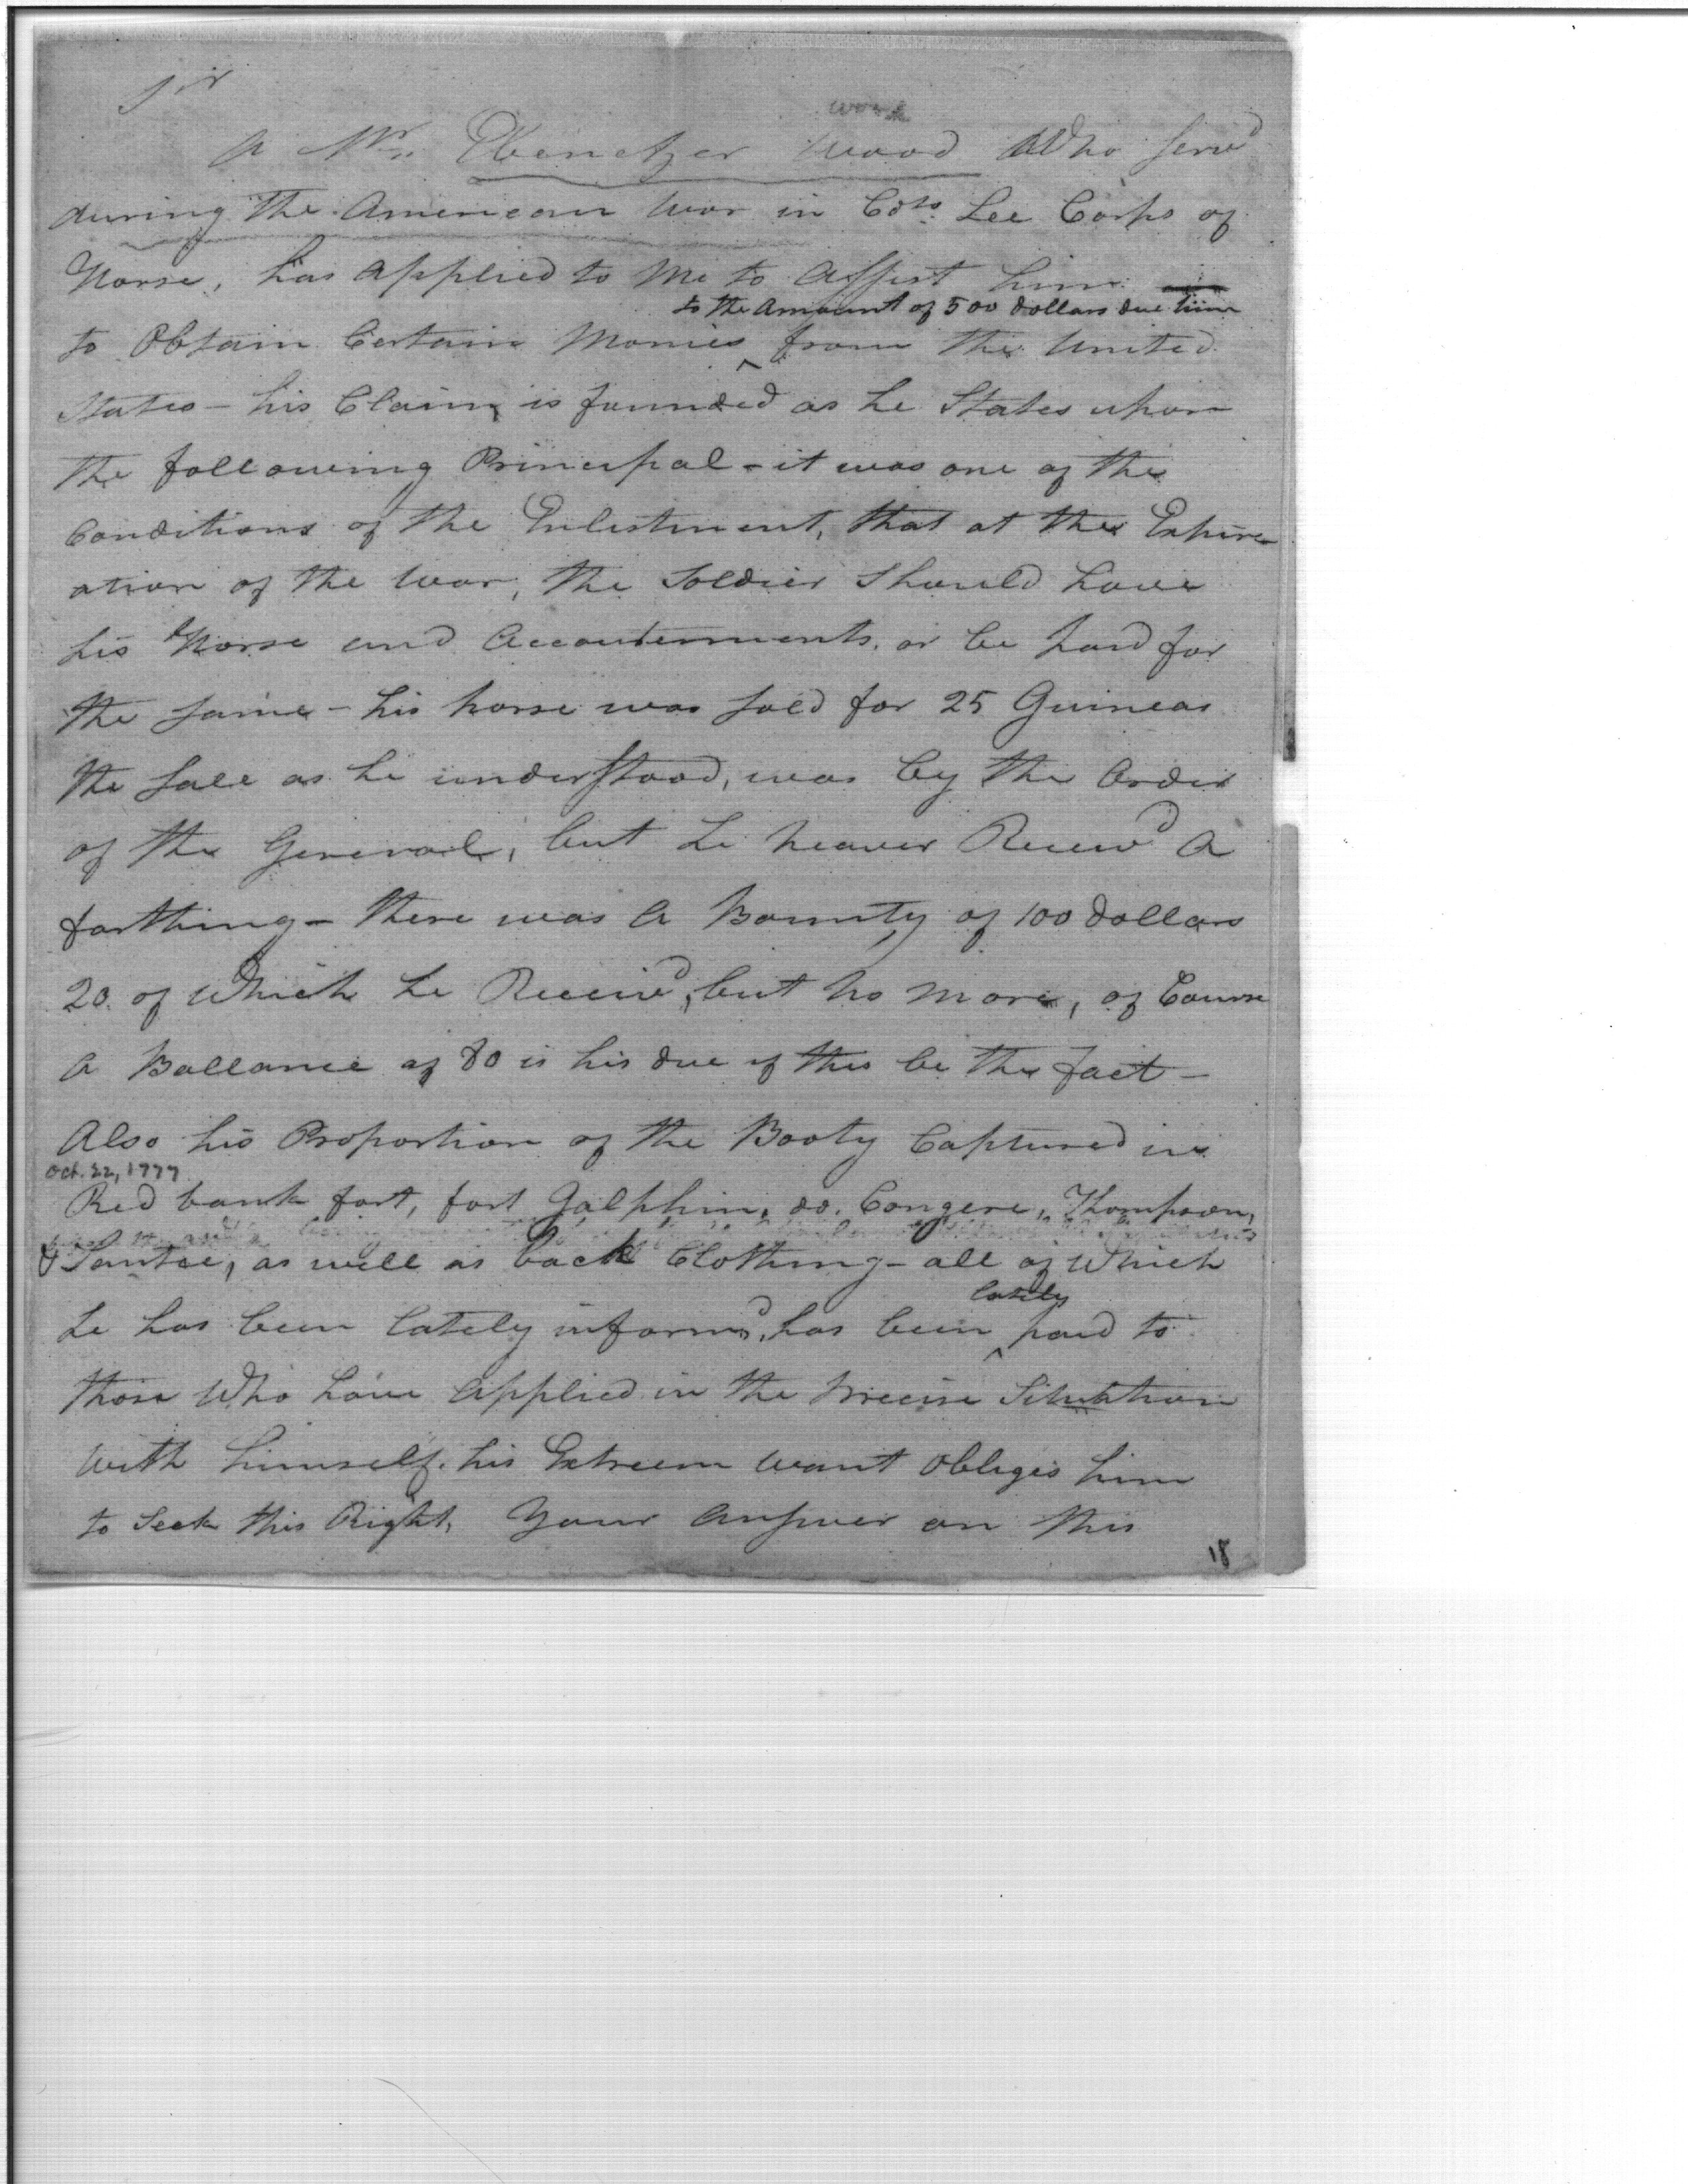 Sir
wood
A Mr. Ebenetzer Wood Who serv'd
during the American War in Cols. Lee Corps of
Horse, has applied to Me to Assist him
to the Amount of 500 dollars due him
to Obtain Certain Monies ^ from the United
States - his Claim is founded as he States upon
the following Principal - it was one of the
Conditions of the Enlistment, that at the Expire
ation of the War, the Soldier Should have
his Horse and Accoutrements, or be paid for
the same - his horse was sold for 25 Guineas
the Sale as he understood, was by the Order
of the General, but he neaver Receiv'd A
farthing - there was A Bounty of 100 dollars
20 of Which he Receiv'd, but no more, of Course
A Ballance of 80 is his due if this be the fact -
Also his Proportion of the Booty Captured in
Oct. 22, 1777
Red bank fort, fort Galphin, do. Congere, Thompson,
& Santee, as well as back Clothing - all of Which
lately
he has been lately inform'd, has been ^ paid to
those Who have Applied in the precise Situation
With himself. his Extreem want Obliges him
to Seek this Right, Your Answer on this
18